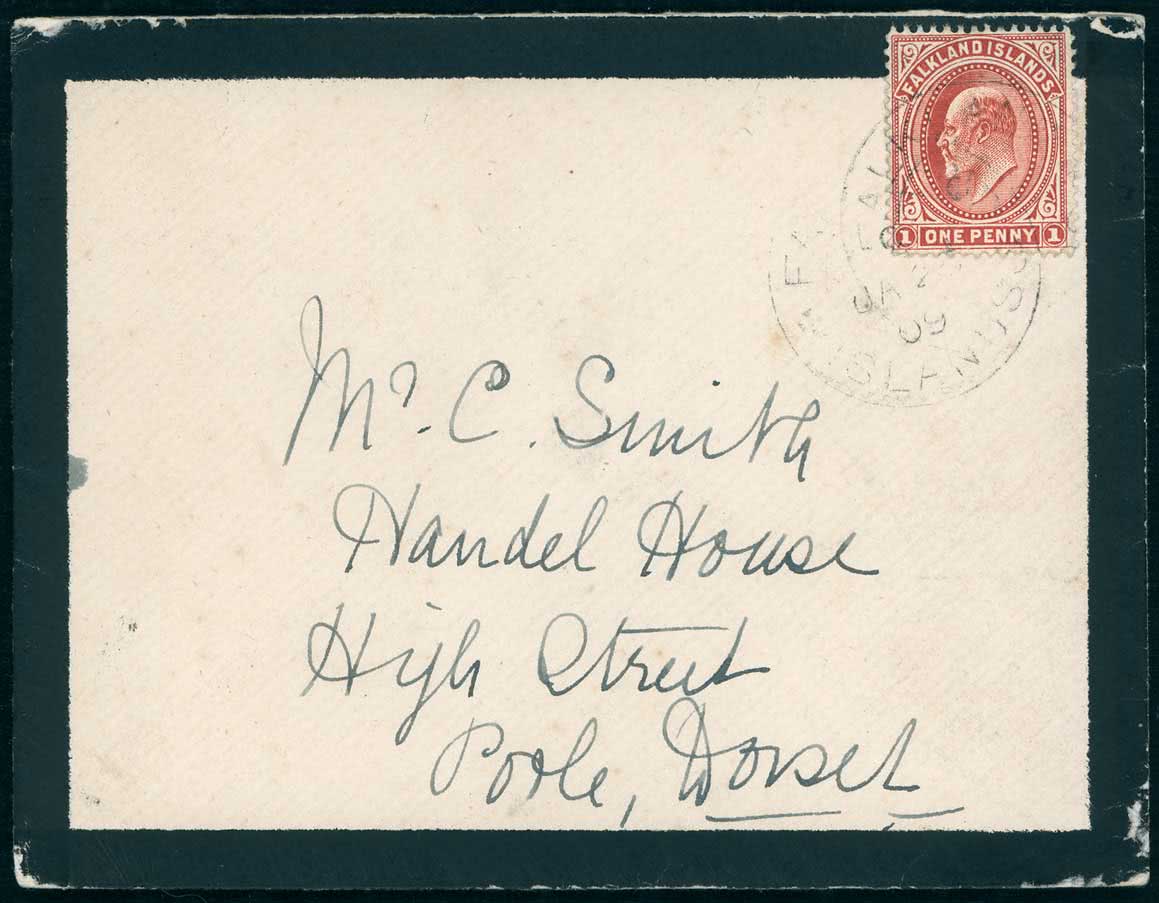 FALKLAND ISLANDS
1 ONE PENNY 1
FALKLAND ISLANDS
JA 2
09
Mr. C. Smith
Handel House
High Street
Poole, Dorset